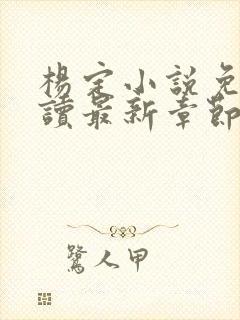 楊定小說免
讀最新章節
鷺人甲